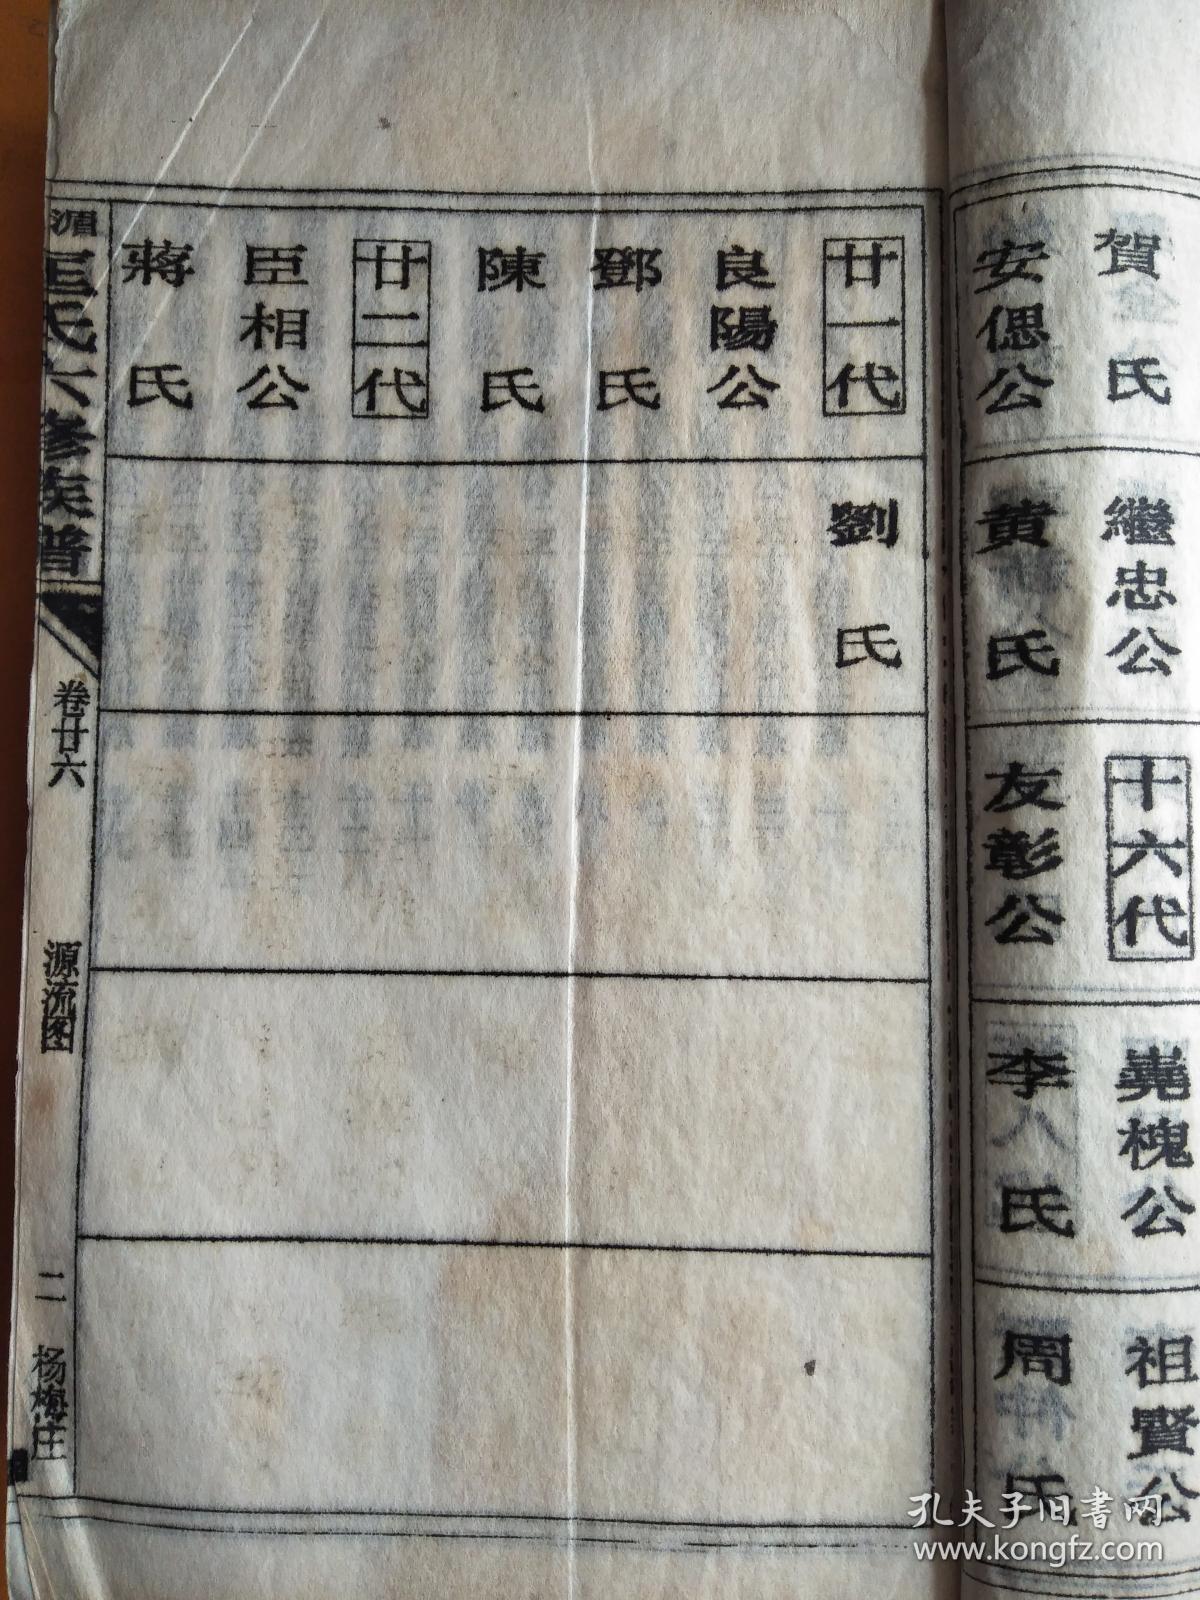 賀氏
繼忠公
十六代
堯槐公
祖賢公
安偲公
黄氏
友彰公
李氏
周氏
廿一代
劉氏
良陽公
鄧氏
陳氏
廿二代
臣相公
蔣氏
氏六修族譜
卷廿六
源流图
二
杨梅庄
孔夫子旧书网
www.kongfz.com